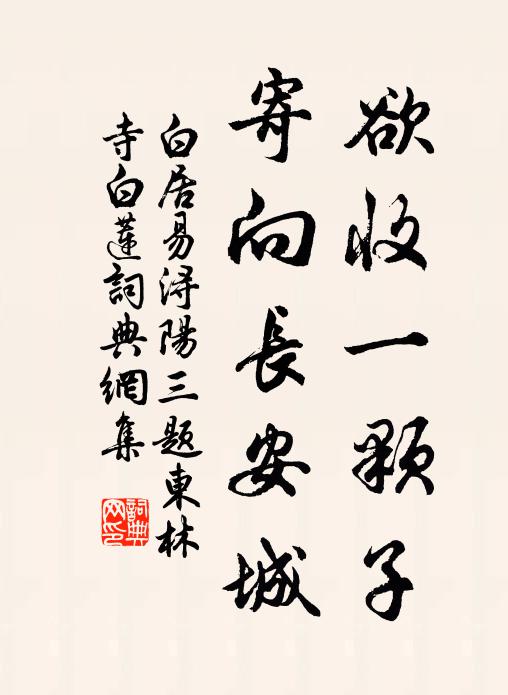 欲收一顆子
寄向長安城
白居易潯陽三题東林
寺白蓮詞典網集
詞典
网印